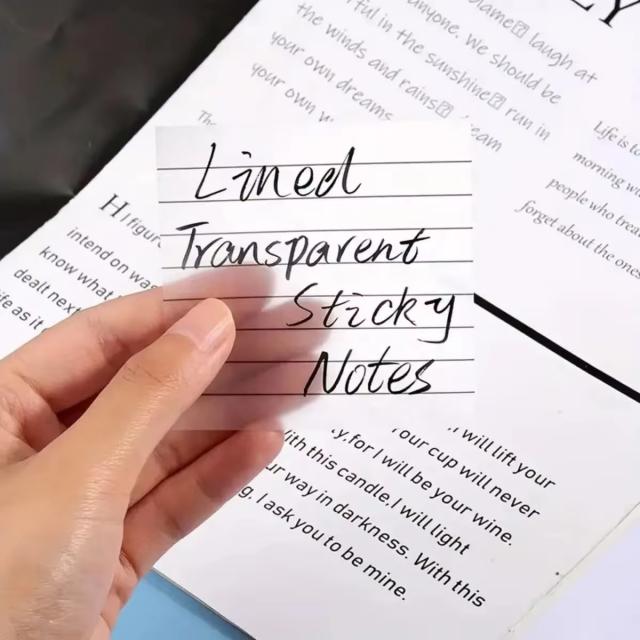 LY
laugh at
anyone, we should be
ful in the sunshine run in
the winds and rains
your own dreams
your own
Life is to
morning
people who trea
forget about the ones
Lined
Transparent
Sticky
Notes
Th
Hi figur
intend on was
know what
dealt next
life as it
I will lift your
y, for I will be your wine.
our cup will never
With this candle, I will light
ur way in darkness. With this
g, I ask you to be mine.